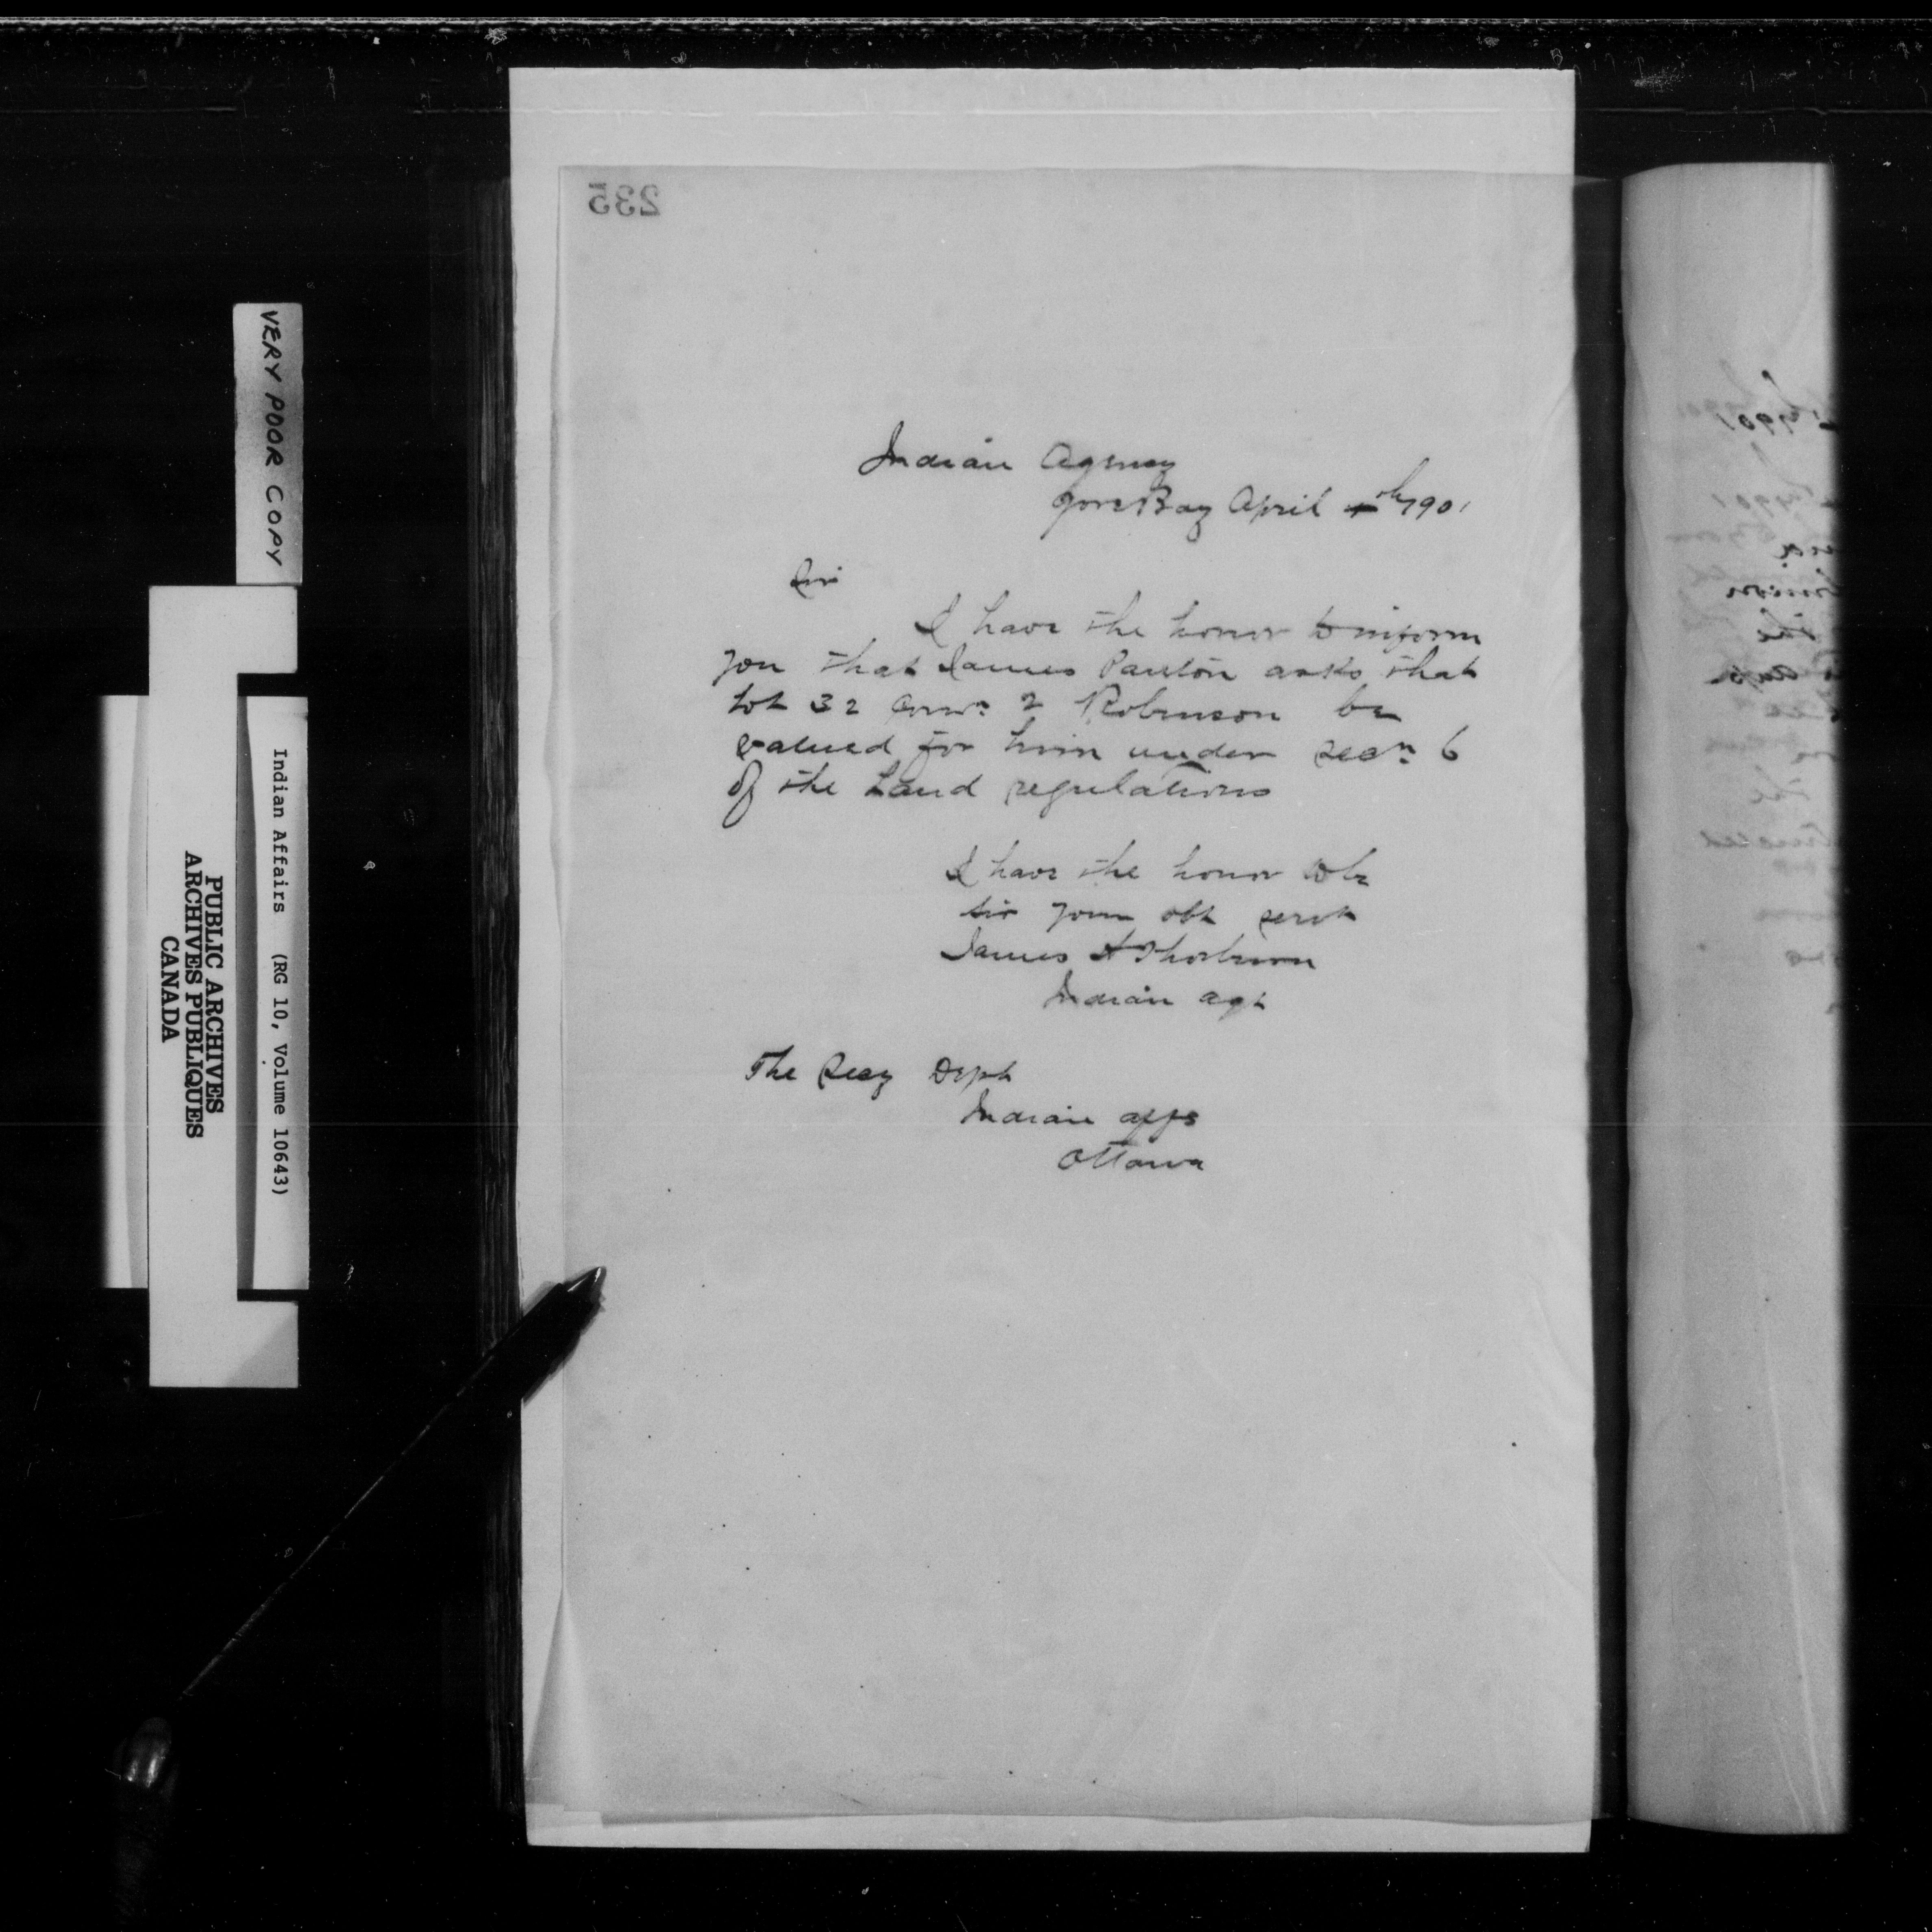 235
Indian Agency
Gore Bay April 4th 1901
Sir
I have the honor to inform
you that James Panton asks that
Lot 32 Conn. 2 Robinson be
valued for him under Secn. 6
of the Land regulations
I have the honor to be
Sir your obt servt
James H Thorburn
Indian agt
The Secy Dept
Indian affs
Ottawa
VERY POOR COPY
Indian Affairs (RG 10, Volume 10643)
PUBLIC ARCHIVES
ARCHIVES PUBLIQUES
CANADA